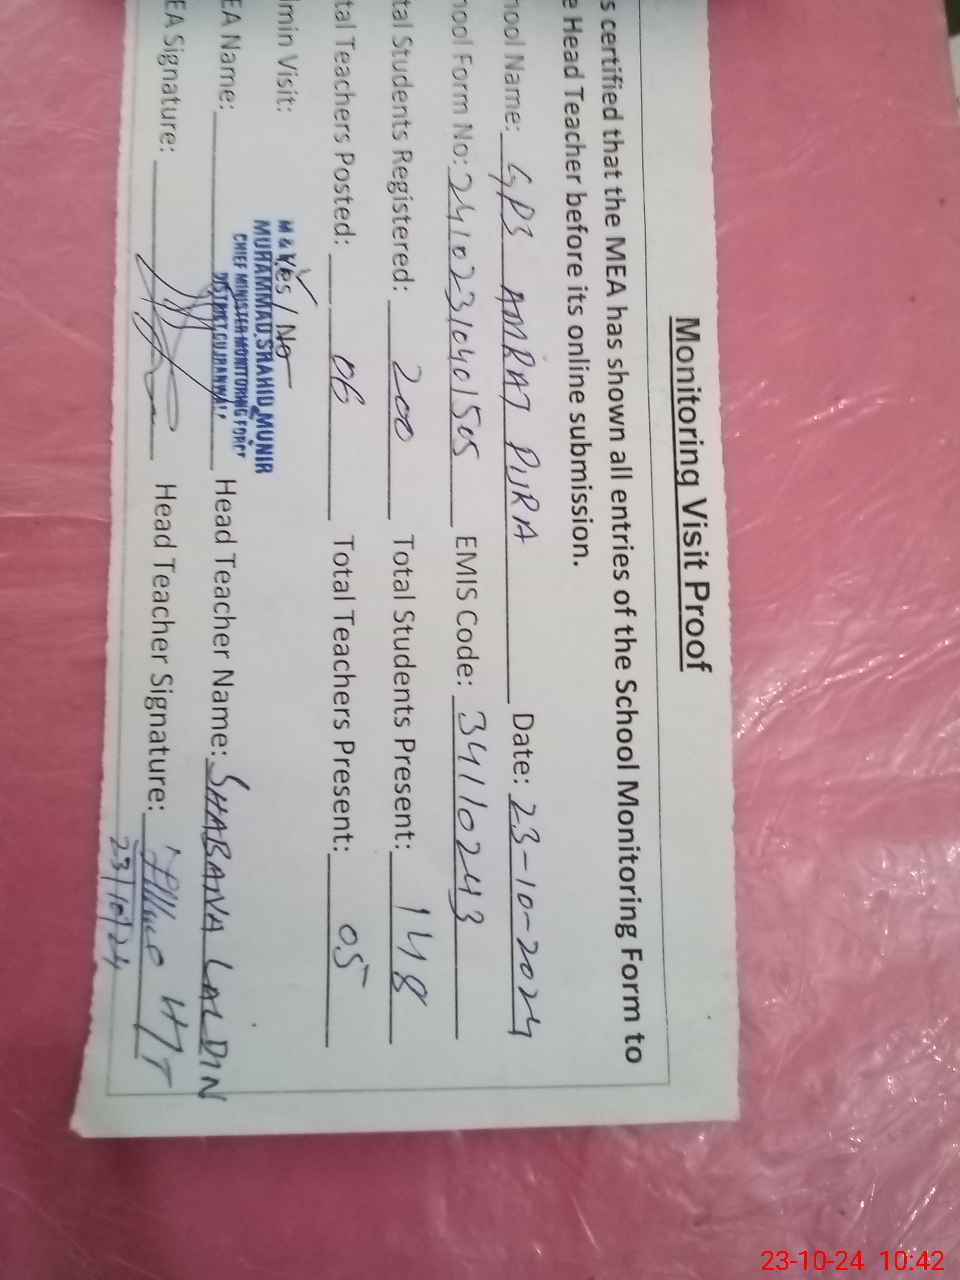 Monitoring Visit Proof
s certified that the MEA has shown all entries of the School Monitoring Form to
e Head Teacher before its online submission.
ool Name: GPS AMRAT PURA Date: 23-10-2024
ool Form No: 24102310401505 EMIS Code: 34110243
tal Students Registered: 200 Total Students Present: 148
tal Teachers Posted: 06 Total Teachers Present: 05
min Visit: Yes / No
M &
MUHAMMAD SHAHID MUNIR
CHIEF MINISTER MONITORING FORCE
DISTRICT GUJRANWALA
EA Name: Head Teacher Name: SHABANA LAL DIN
EA Signature: Head Teacher Signature: HT
23/10/24
23-10-24 10:42